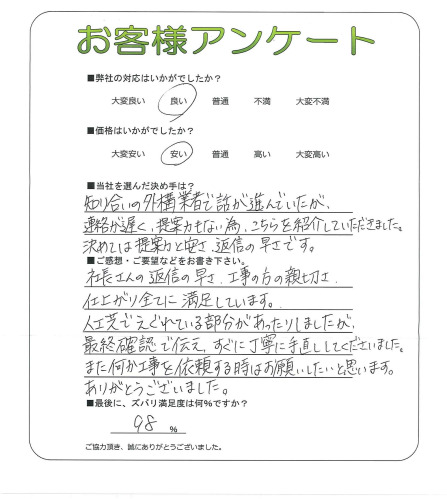 お客様アンケート
■弊社の対応はいかがでしたか?
大変良い 良い 普通 不満 大変不満
■価格はいかがでしたか?
大変安い 安い 普通 高い 大変高い
■当社を選んだ決め手は?
知り合いの外構業者で話が進んでいたが、
連絡が遅く、提案力もない為、こちらを紹介していただきました。
決めては提案力と安さ、返信の早さです。
■ご感想・ご要望などをお書き下さい。
社長さんの返信の早さ、工事の方の親切さ、
仕上がり全てに満足しています。
人工芝でえぐれている部分があったりしましたが、
最終確認で伝え、すぐに丁寧に手直ししてくださいました。
また何か工事を依頼する時はお願いしたいと思います。
ありがとうございました。
■最後に、ズバリ満足度は何%ですか?
98 %
ご協力頂き、誠にありがとうございました。